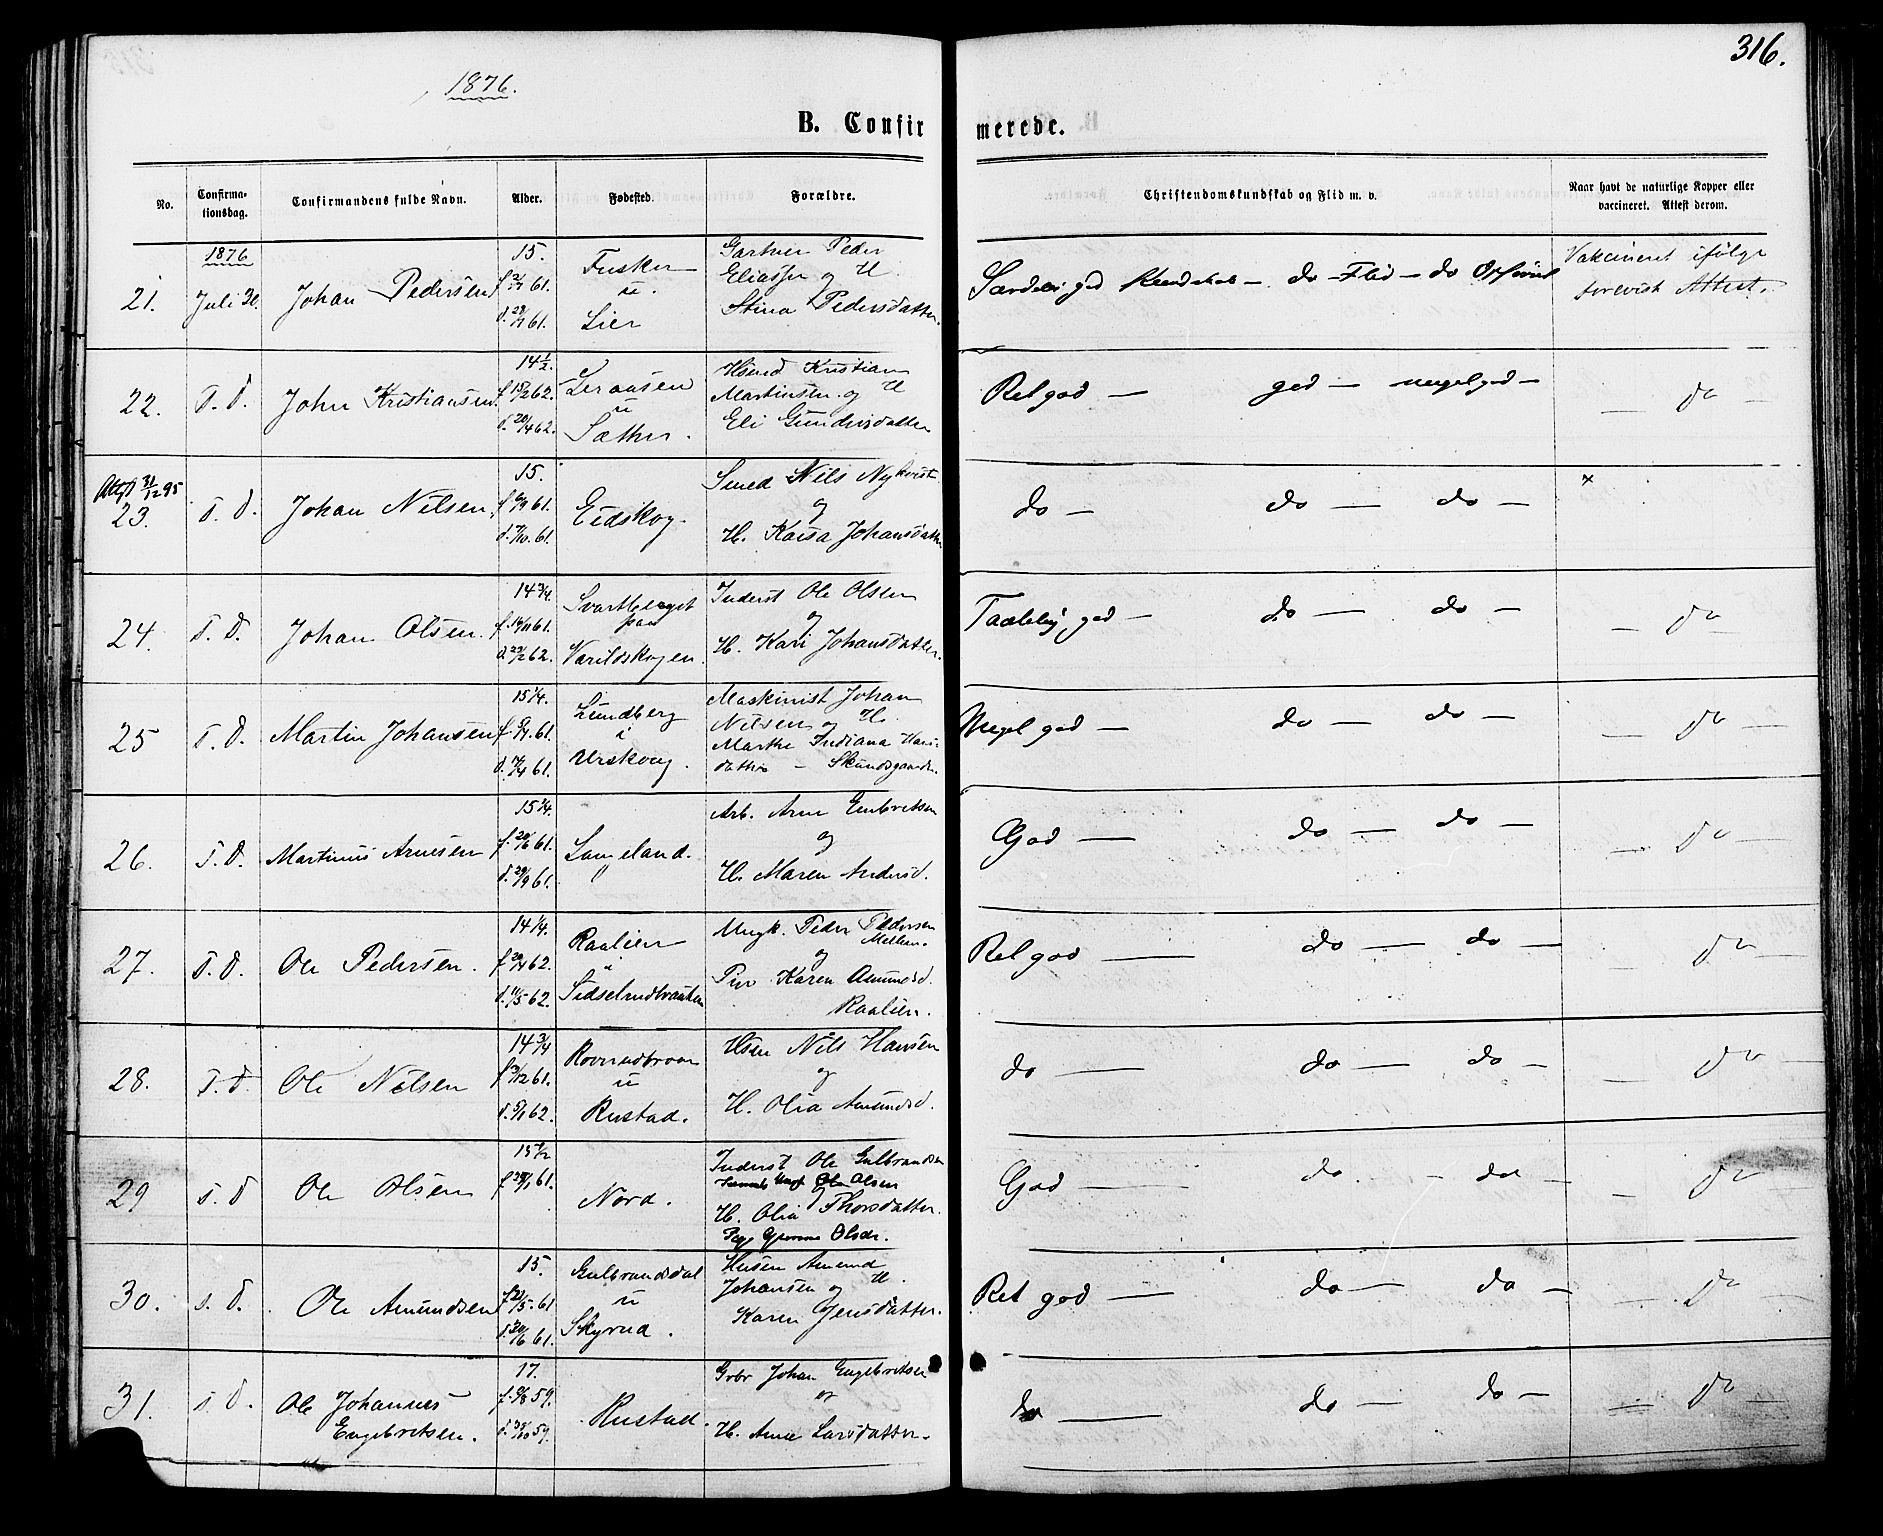 316.
1876.
B. Confir merede.
No.
Confirma-
tionsdag.
Confirmandens fulde Navn.
Alder.
Fødested.
Forældre.
Christendomskundskab og Flid m. v.
Naar havt de naturlige Kopper eller
vaccineret. Attest derom.
1876
21. Juli 30. Johan Pedersen
15.
61.
61.
i
Lier
Gartner Peder
Eliassen og H
Stina Pedersdatter.
Særdeles god Kundskab – do – Flid – do Opførsel
Vakcineret ifølge
forevist Attest.
22. S. D. John Kristiansen
14 1/2.
f 15/2 62.
d. 20/4 62.
i
Sæther.
Hsmd Kristian
Martinsen og H
Eli Gundersdatter
Ret god — god — meget god —
— do —
Attst 31/12 95
23. S. D. Johan Nilsen.
15.
61.
d. 7/10. 61.
Eidskog.
Smed Nils Nykvist
og
H. Kaisa Johansdatter
do — do — do —
x
24. S. D. Johan Olsen.
14 3/4.
f. 16/11 61.
d. 23/2 62.
paa
Varildskogen.
Inderst Ole Olsen
og
H. Kari Johansdatter.
Taalelig god — do — do —
— do —
25 S. D. Martin Johansen
15 1/4.
61.
d. 7/4 61.
Lundberg
i
Urskoug.
Maskinist Johan
Nilsen og H.
Marthe Indiana Hans-
datter —
Meget god — do — do —
— do —
26. S. D. Martinus Arnesen
15 1/4.
f. 20/6 61.
d. 29/9 61.
Langeland.
Arb. Arne Embretsen
og
H. Maren Andersd.
God — do — do —
— do —
27. S. D. Ole Pedersen.
14 1/4.
f 20/4 62.
d. 11/5 62.
Raalien
i
Ungk. Peder Pedersen
Mellem.
og
Pige Karen Amundsd.
Raalien.
Ret god — do — do —
— do —
28. S. D. Ole Nilsen
14 3/4
61.
d. 5/1 62.
i
Rustad.
Hsm Nils Hansen
og
H. Olia Amundsd.
do — do — do —
— do —
29 S. D Ole Olsen
15 1/2
61.
Nord.
Inderst Ole Gulbrandsen
Ole Olsen
H. Olia Thorsdatter.
Olsdr.
God — do — do —
— do
30. S. D. Ole Amundsen
15.
f 21/5. 61
d. 30/6 61.
Gulbrandsdal
i
Skyrud.
Husm Amund
Johansen og H.
Karen Jensdatter.
Ret god — do — do —
— do —
31. S. D. Ole Johannes
Engebretsen.
17.
59.
d. 30/10 59.
Rustad.
Grbr Johan Engebretsen
og
H. Anne Larsdatter.
do — do — do —
— do —